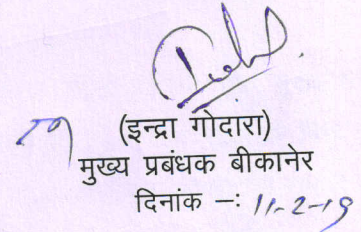 (इन्द्रा गोदारा)
मुख्य प्रबंधक बीकानेर
दिनांक -: 11-2-19